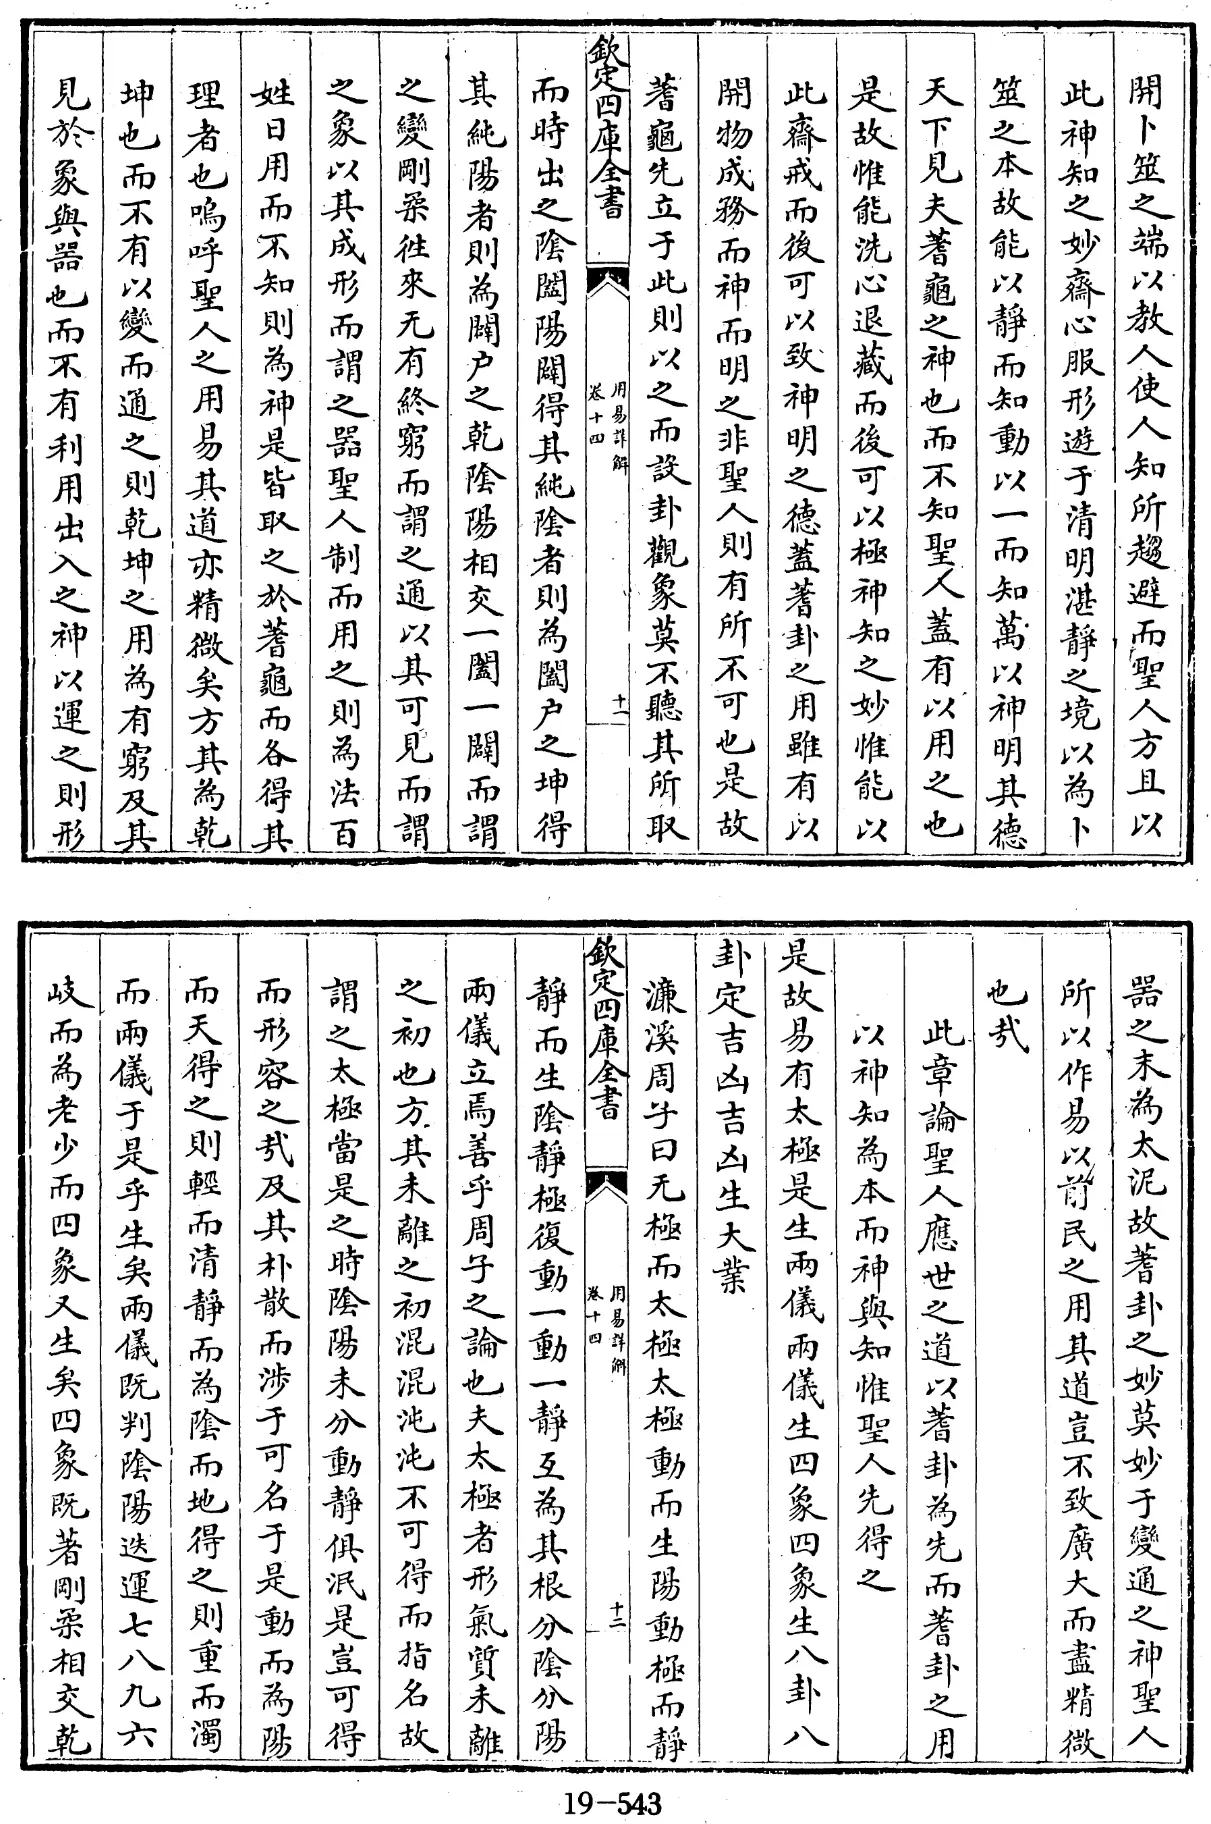 開卜筮之端以教人使人知所趨避而聖人方且以
此神知之妙齋心服形遊于清明湛靜之境以為卜
筮之本故能以靜而知動以一而知萬以神明其德
天下見夫蓍龜之神也而不知聖人蓋有以用之也
是故惟能洗心退藏而後可以極神知之妙惟能以
此齋戒而後可以致神明之德蓋蓍卦之用雖有以
開物成務而神而明之非聖人則有所不可也是故
蓍龜先立于此則以之而設卦觀象莫不聽其所取
欽定四庫全書
用易詳解
卷十四
十一
而時出之陰闔陽闢得其純陰者則為闔户之坤得
其純陽者則為闢户之乾陰陽相交一闔一闢而謂
之變剛柔徃來无有終窮而謂之通以其可見而謂
之象以其成形而謂之器聖人制而用之則為法百
姓日用而不知則為神是皆取之於蓍龜而各得其
理者也嗚呼聖人之用易其道亦精微矣方其為乾
坤也而不有以變而通之則乾坤之用為有窮及其
見於象與器也而不有利用出入之神以運之則形
器之末為太泥故蓍卦之妙莫妙于變通之神聖人
所以作易以前民之用其道豈不致廣大而盡精微
也㢤
此章論聖人應世之道以蓍卦為先而蓍卦之用
以神知為本而神與知惟聖人先得之
是故易有太極是生兩儀兩儀生四象四象生八卦八
卦定吉凶吉凶生大業
濂溪周子曰无極而太極太極動而生陽動極而靜
欽定四庫全書
用易詳解
卷十四
十二
靜而生陰靜極復動一動一靜互為其根分陰分陽
兩儀立焉善乎周子之論也夫太極者形氣質未離
之初也方其未離之初混混沌沌不可得而指名故
謂之太極當是之時陰陽未分動靜俱泯是豈可得
而形容之㢤及其朴散而涉于可名于是動而為陽
而天得之則輕而清靜而為陰而地得之則重而濁
而兩儀于是乎生矣兩儀既判陰陽迭運七八九六
岐而為老少而四象又生矣四象既著剛柔相交乾
19-543